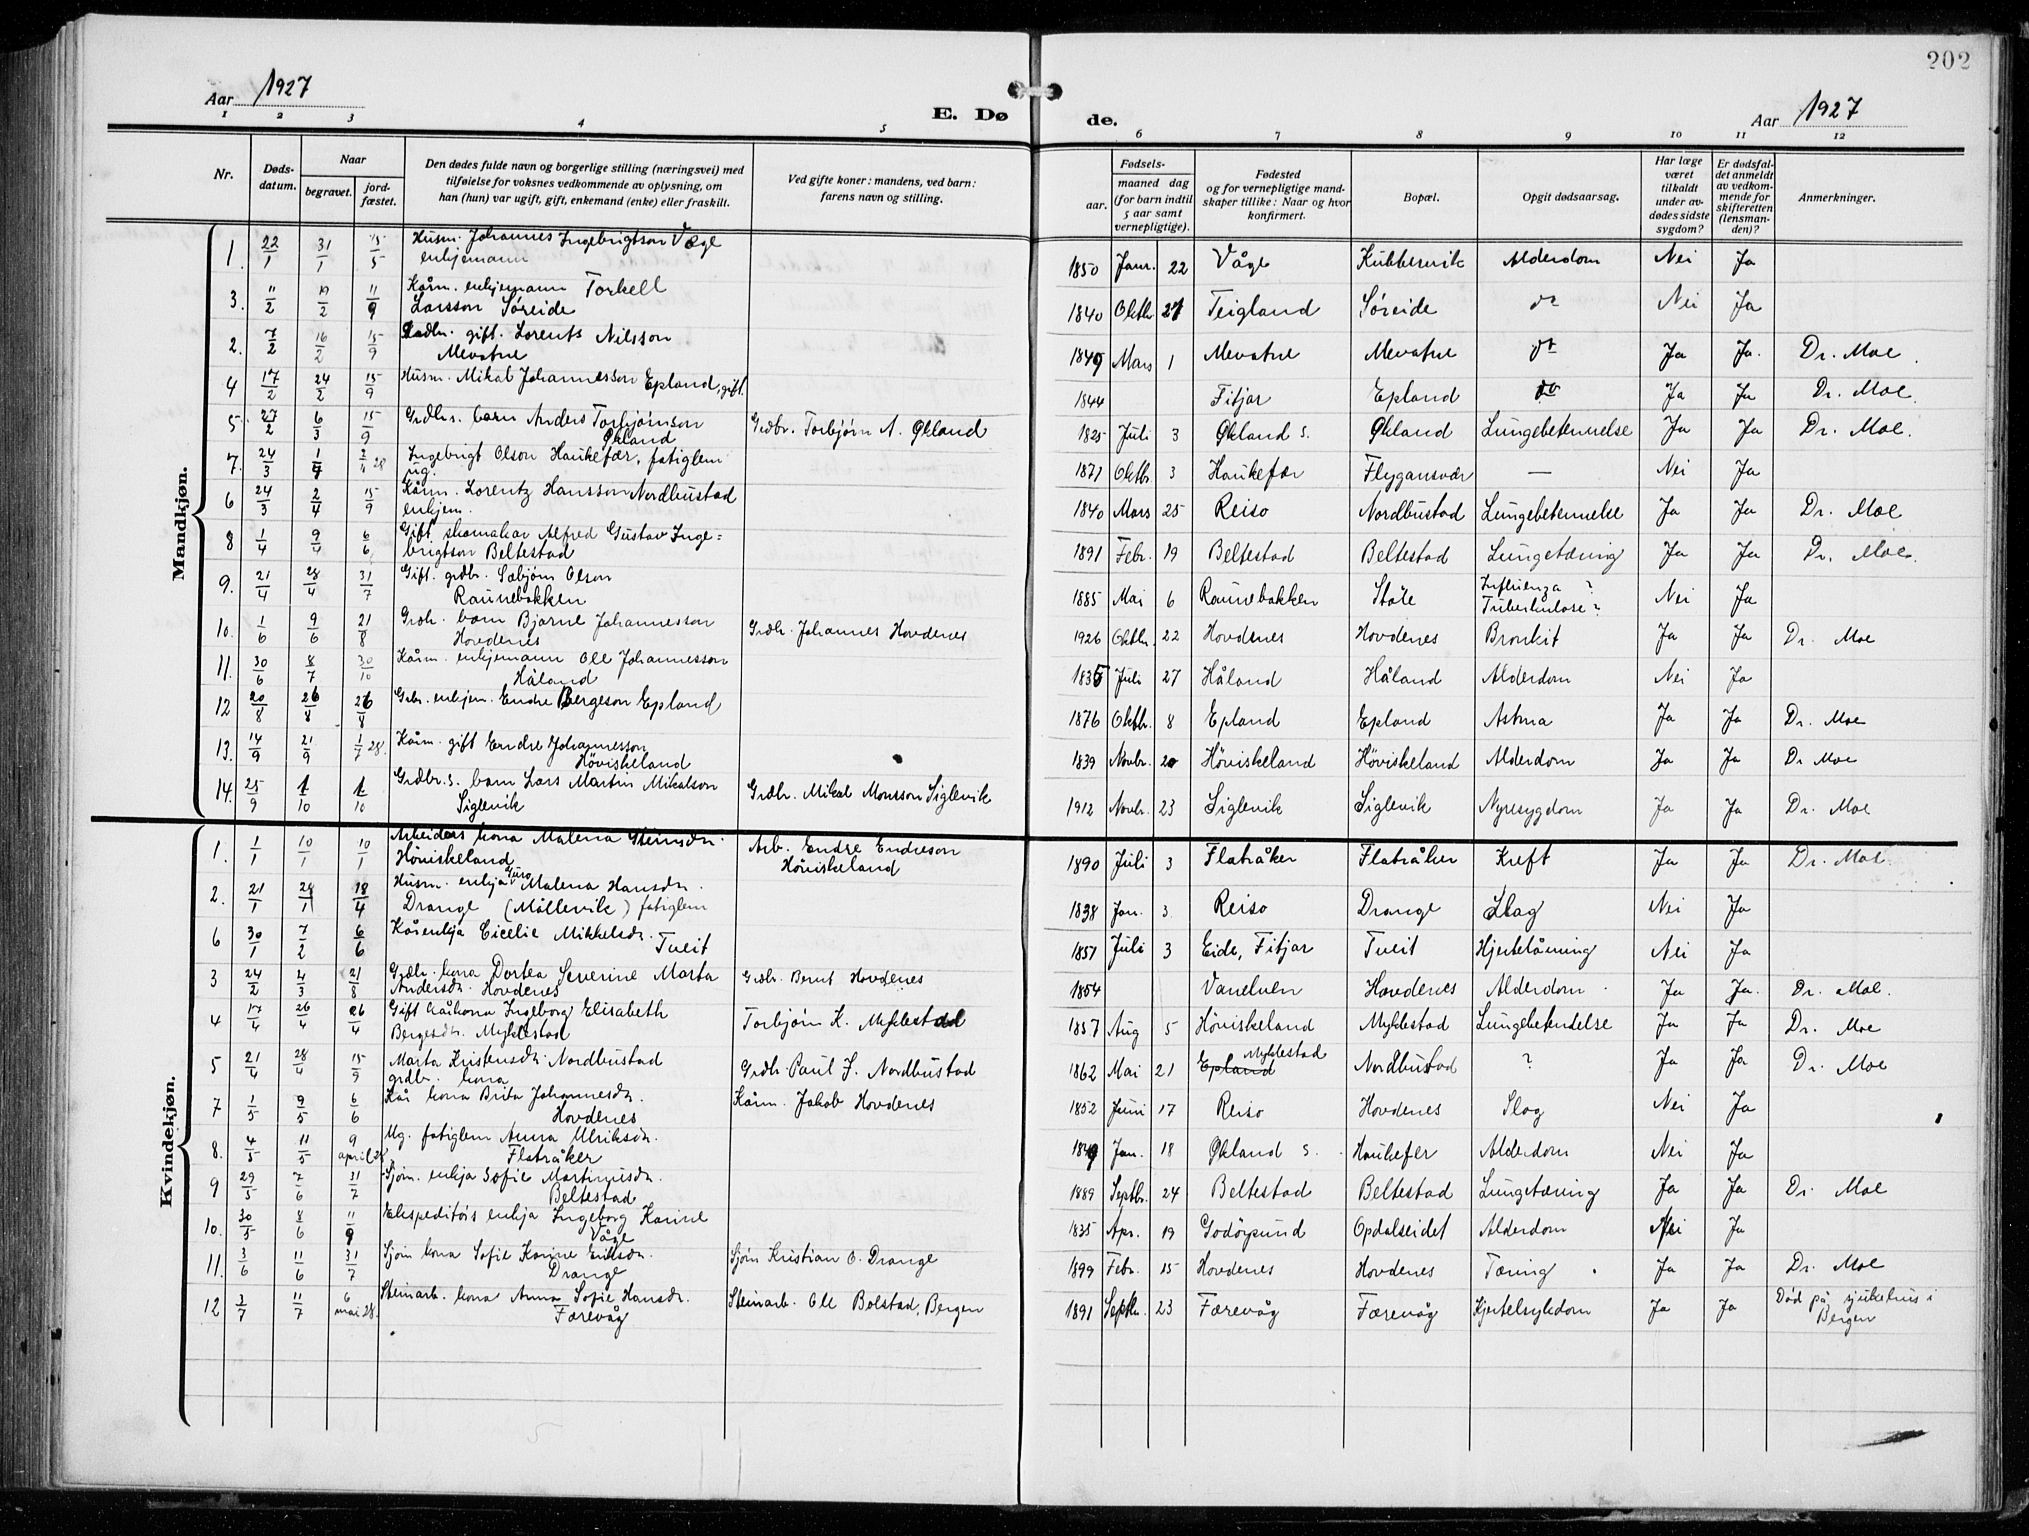 202
Aar 1927
E. Dø de.
Aar 1927
1 2 3 4 5 6 7 8 9 10 11 12
Nr.
Døds-datum.
Naar
begravet.
jord-fæstet.
Den dødes fulde navn og borgerlige stilling (næringsvei) med
tilføielse for voksnes vedkommende av oplysning, om
han (hun) var ugift, gift, enkemand (enke) eller fraskilt.
Ved gifte koner: mandens, ved barn:
farens navn og stilling.
Fødsels-
aar.
maaned dag
(for barn indtil
5 aar samt
vernepligtige).
Fødested
og for vernepligtige mand-
skaper tillike: Naar og hvor
konfirmert.
Bopæl.
Opgit dødsaarsag.
Har læge
været
tilkaldt
under av-
dødes sidste
sygdom?
Er dødsfal-
det anmeldt
av vedkom-
mende for
skifteretten
(lensman-
den)?
Anmerkninger.
Mandkjøn.
1. 22/1 31/1 15/5 Husm. Johannes Ingebrigtson Våge
enkjemann 1850 Janr. 22 Våge Kubbervik Alderdom Nei Ja
3. 11/2 19/2 11/9 Kårm. enkjemann Torkell
Larsson Søreide 1840 Oktbr 27 Teigland Søreide do Nei Ja
2. 7/2 16/2 15/9 Gardbr. gift. Lorents Nilsson
Mevatne 1849 Mars 1 Mevatne Mevatne do Ja Ja. Dr. Moe.
4 17/2 24/2 15/9 Husm. Mikal Johannesson Epland, gift. 1844 Fitjar Epland do Ja Ja Dr. Moe.
5. 27/2 6/3 15/9 Grdbr. barn Anders Torbjørnson
Økland Grdbr. Torbjørn A. Økland 1825 Juli 3 Økland s. Økland Lungebetennelse Ja Ja Dr. Moe.
7. 24/3 1/4 2/4 28 Ingebrigt Olson Haukefær, fatiglem
ug. 1871 Oktbr. 3 Haukefær Flygansvær — Nei Ja
6 24/3 2/4 15/9 Kårm. Lorentz Hansson Nordbustad
enkjem. 1840 Mars 25 Reiso Nordbustad Lungebetennelse Ja Ja Dr. Moe
8 1/4 9/4 6/6 Gift skomakar Alfred Gustav Inge=
brigtson Beltestad 1891 Febr. 19 Beltestad Beltestad Lungetæring Ja Ja Dr. Moe.
9. 21/4 28/4 31/7 Gift. grdbr. Sæbjørn Olson
Raunebakken 1885 Mai 6 Raunebakken Støle Influenza ?
Tuberkulose? Nei Ja
10. 1/6 9/6 21/8 Grdbr. barn Bjarne Johannesson
Hovdenes Grdbr. Johannes Hovdenes 1926 Oktbr. 22 Hovdenes Hovdenes Bronkit Ja Ja Dr. Moe
11. 30/6 8/7 30/10 Kårm. enkjemann Ole Johannesson
Håland 1835 Juli 27 Håland Håland Alderdom Nei Ja
12 20/8 26/8 26/8 Gbr. enkjem. Endre Bergeson Epland 1876 Oktbr. 8 Epland Epland Astma Ja Ja Dr. Moe
13. 14/9 21/9 1/7 28. Kårm. gift Endre Johannesson
Høviskeland 1839 Novbr. 20 Høviskeland Høviskeland Alderdom Ja Ja Dr Moe
14. 25/9 1/10 1/10 Grdbr.s. barn Lars Martin Mikalson
Siglevik Grdbr. Mikal Monsson Siglevik 1912 Novbr. 23 Siglevik Siglevik Nyresygdom Ja Ja Dr. Moe
Kvindekjøn.
1. 1/1 10/1 10/1 Arbeiders kona Malena Steinsdr.
Høviskeland Arb. Endre Endreson
Høviskeland 1890 Juli 3 Flatråker Flatråker Kreft Ja Ja Dr. Moe
2. 21/1 28/1 18/4 Husm. enkja Guro Malena Hansdr.
Drange (Møllevik) fatiglem 1838 Jan. 3. Reiso Drange Slag Nei Ja
6 30/1 7/2 6/6 Kårenkja Cicelie Mikkelsdr.
Tveit 1851 Juli 3 Eide, Fitjar Tveit Hjertelåming Nei Ja
3 24/2 4/3 21/8 Grdbr. kona Dortea Severine Marta
Andersdr. Hovdenes Grdbr. Bernt Hovdenes 1854 Vanelven Hovdenes Alderdom Ja Ja. Dr. Moe.
4 17/4 26/4 26/4 Gift kårkona Ingeborg Elisabeth
Bergesdr. Myklestad Torbjørn K. Myklestad 1857 Aug 5 Høviskeland Myklestad Lungebetendelse Ja Ja Dr. Moe
5 21/4 28/4 15/9 Marta Kristensdr. Nordbustad
grdbr. kona Grdbr. Paul J. Nordbustad 1862 Mai 21 Epland Myklestad Nordbustad ? Ja Ja Dr. Moe
7 1/5 9/5 6/6 Kår kona Brita Johannesdr.
Hovdenes Kårm. Jakob Hovdenes 1852 Juni 17 Reiso Hovdenes Slag Nei Ja
8. 4/5 11/5 9 april 28. Ug. fatiglem Anna Ulriksdr.
Flatråker 1849 Jan. 18 Økland s. Haukefer Alderdom Nei Ja
9 29/5 7/6 31/7 Sjøm. enkja Sofie Martinusdr.
Beltestad 1889 Septbr. 24 Beltestad Beltestad Lungetæring Ja Ja Dr. Moe
10. 30/5 8/6 11/9 Ekspeditørs enkja Ingeborg Karine
Våge 1835 Apr. 19 Godøysund Opdalseidet Alderdom Nei Ja
11. 3/6 11/6 31/7 Sjøm kona Sofie Karine Eriksdr.
Drange Sjøm Kristian O. Drange 1899 Febr. 15 Hovdenes Hovdenes Tæring Ja Ja Dr. Moe
12 3/7 11/7 6 mai 28. Steinarb. kona Anna Sofie Hansdr.
Færevåg Steinarb. Ole Bolstad, Bergen 1891 Septbr. 23 Færevåg Færevåg Hjertelsykdom Ja Ja Død på sjukehus i
Bergen